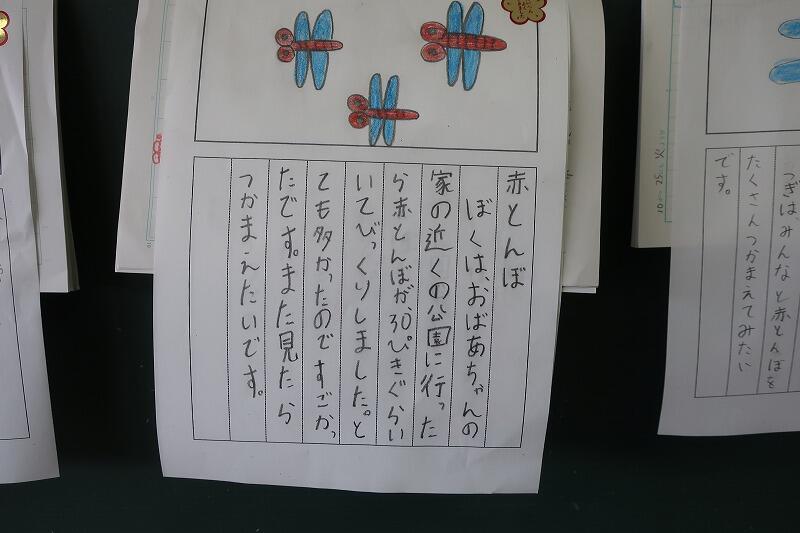 赤とんぼ
ぼくは、おばあちゃんの
家の近くの公園に行った
ら赤とんぼが、30ぴきぐらい
いてびっくりしました。と
ても多かったのですごかっ
たです。また見たら
つかまえたいです。
つぎはみんなと赤とんぼを
たくさんつかまえてみたい
です。